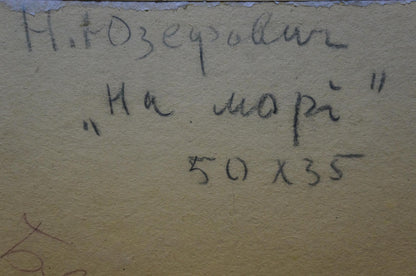 Н. Юзефович
„На морі"
50 х 35